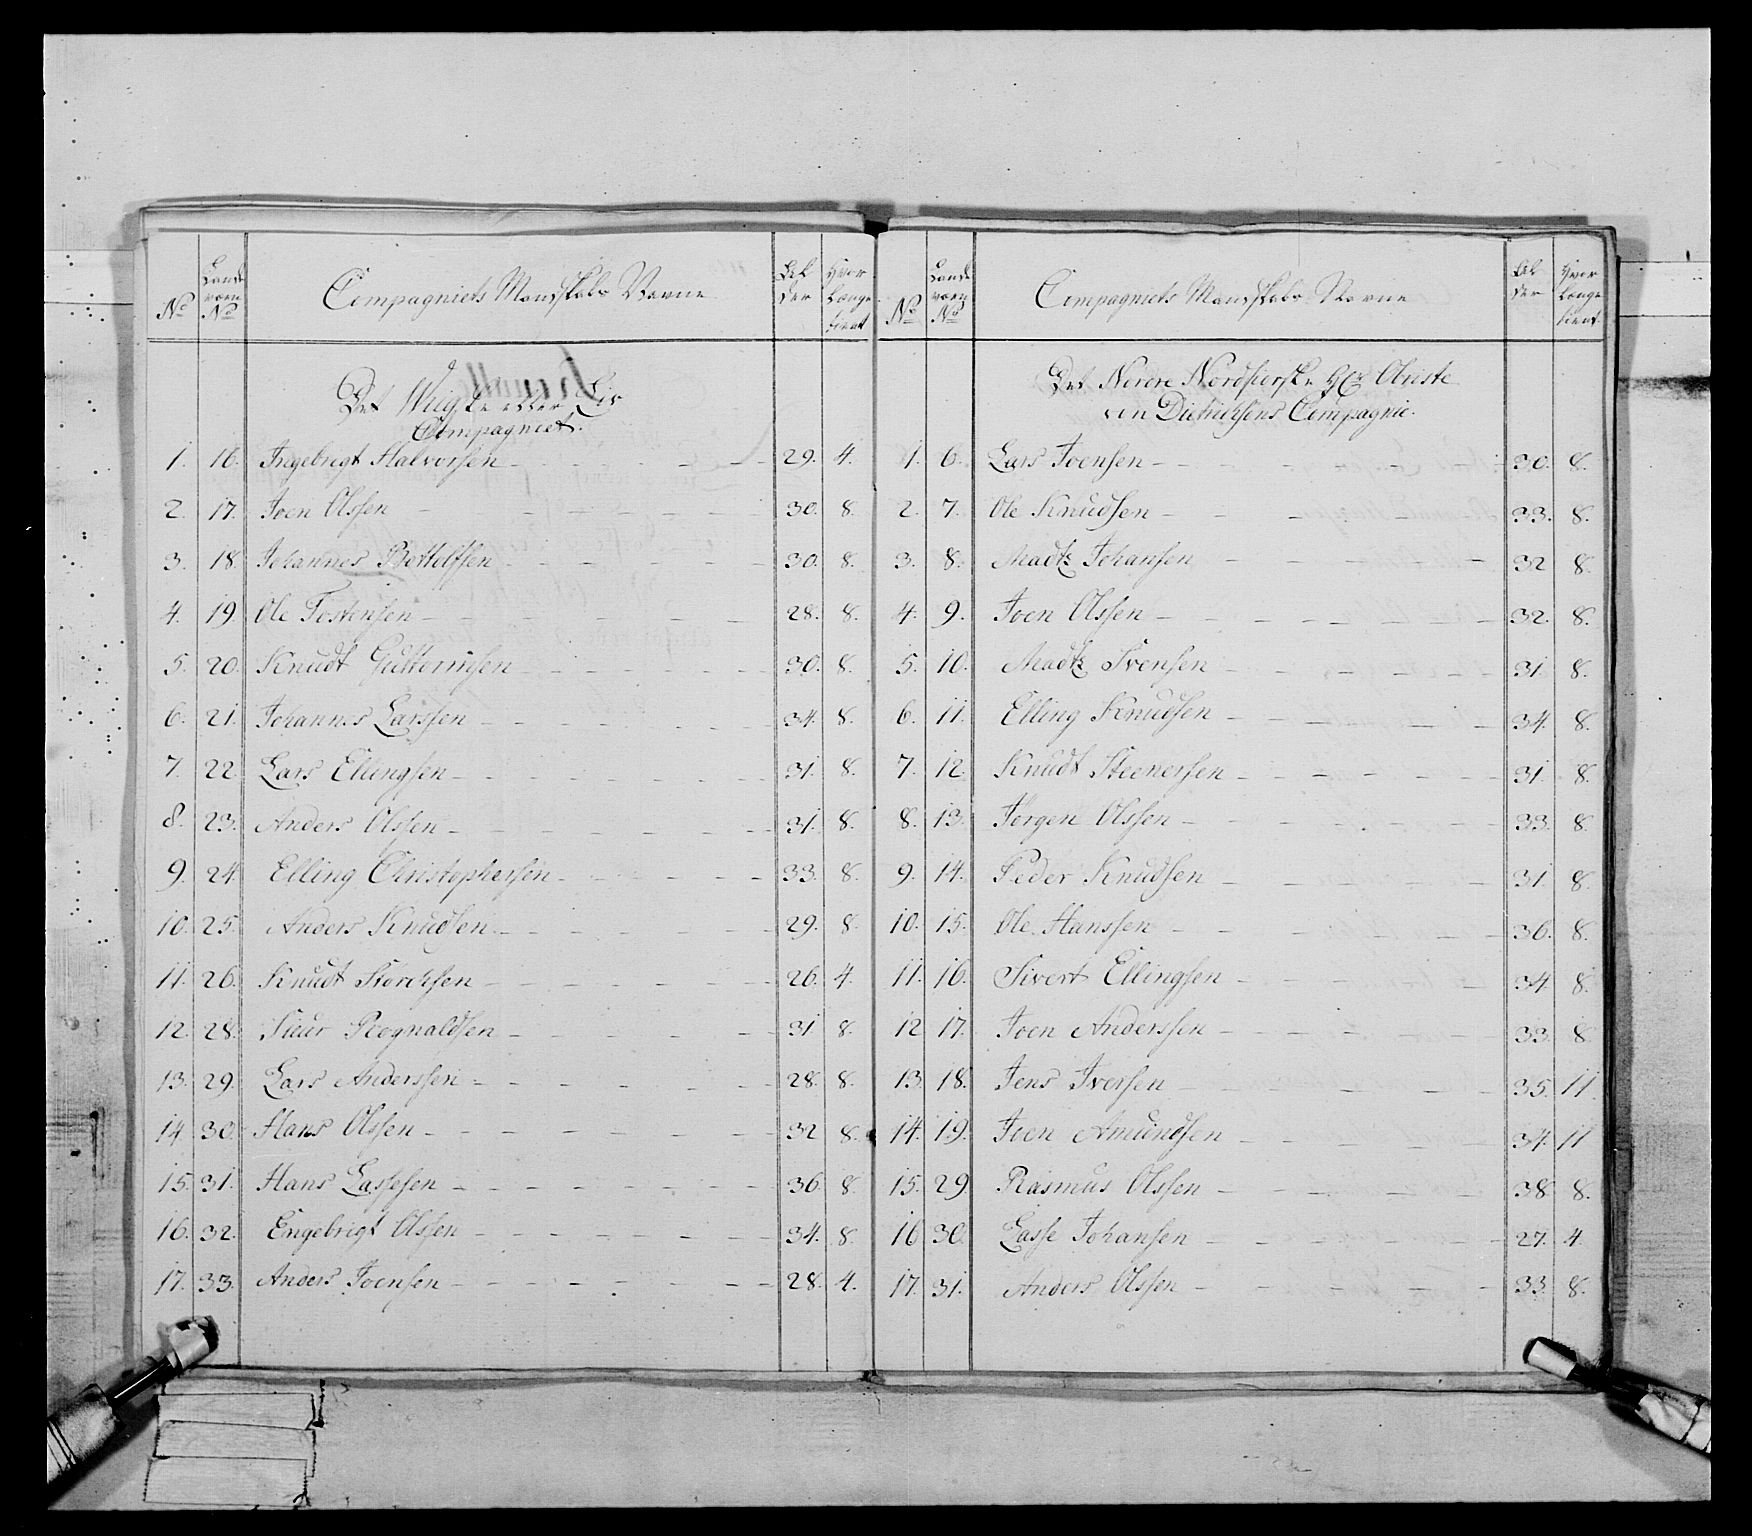 No
Land
værn
No
Compagniets Mandskabs Navne
Al
der
Hvor
Længe
tient
Det Wiigske eller Liv
Compagniet.
1. 16. Ingebrigt Halvorsen 29. 4.
2. 17. Joen Olssen 30. 8.
3. 18. Johannes Bottelssen 30. 8.
4. 19. Ole Tostensen 28. 8.
5. 20. Knudt Guttormsen 30. 8.
6. 21. Johannes Larssen 34. 8.
7. 22 Lars Ellingsen 31. 8.
8. 23. Anders Olssen 31. 8.
9. 24. Elling Christophersen 33. 8.
10. 25. Anders Knudsen 29. 8.
11. 26. Knudt Storchsen 26. 4.
12. 28. Siur Rognaldsen 31 8.
13. 29. Lars Anderssen 28. 8.
14 30. Hans Olssen 32 8.
15. 31. Hans Lassesen 36. 8.
16. 32. Engebrigt Olssen 34. 8.
17. 33. Anders Joensen 28. 4.
No
Land
værn
No
Compagniets Mandskabs Navne
Al
der
Hvor
Længe
tient.
Det Nerre Nordfiorske Obriste
von Dietrichsens Compagnie.
1. 6. Lars Joensen 30. 8.
2. 7. Ole Knudsen 33. 8.
3. 8. Madtz Johansen 32 8.
4. 9. Joen Olssen 32. 8.
5. 10. Madtz Svensen 31. 8.
6. 11. Elling Knudsen 34. 8.
7. 12. Knudt Steenersen 31. 8.
8. 13. Jørgen Olssen 33. 8.
9. 14. Peder Knudsen 31. 8.
10. 15. Ole Hanssen 36. 8.
11. 16. Sivert Ellingsen 34. 8.
12 17. Joen Anderssen 33. 8.
13. 18. Jens Iversen 35. 11.
14. 19. Joen Amundsen 37. 11
15. 29. Rasmus Olssen 38 8.
16 30. Lasse Johansen 27. 4.
17. 31. Anders Olssen 33. 8.